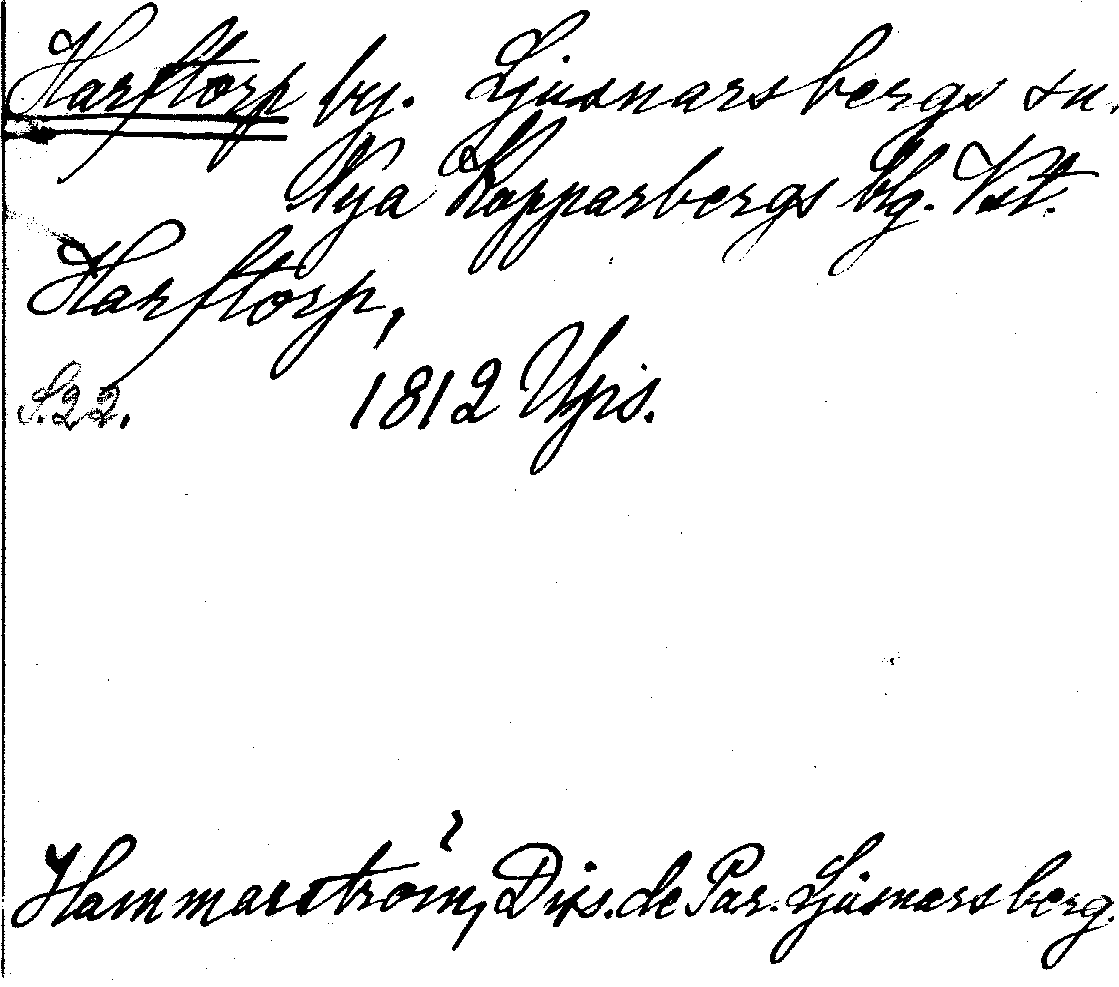 Harftorp by. Ljusnarsbergs sn.
Nya Kopparbergs blg. Vstt.
Harftorp,
S.22. 1812 Ups.
Hammarström, Diss. de Par. Ljusnarsberg.